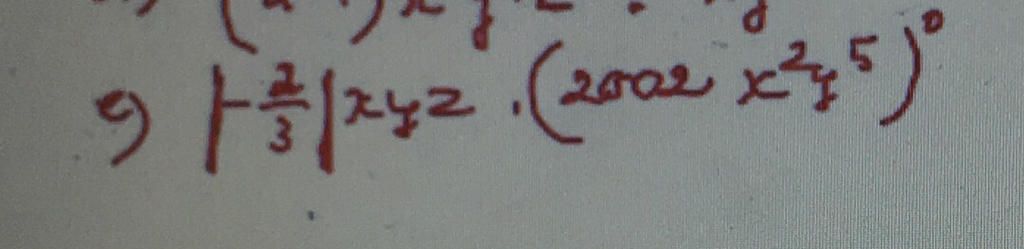 9) |-2/3|xyz . (2002 x²y⁵)⁰